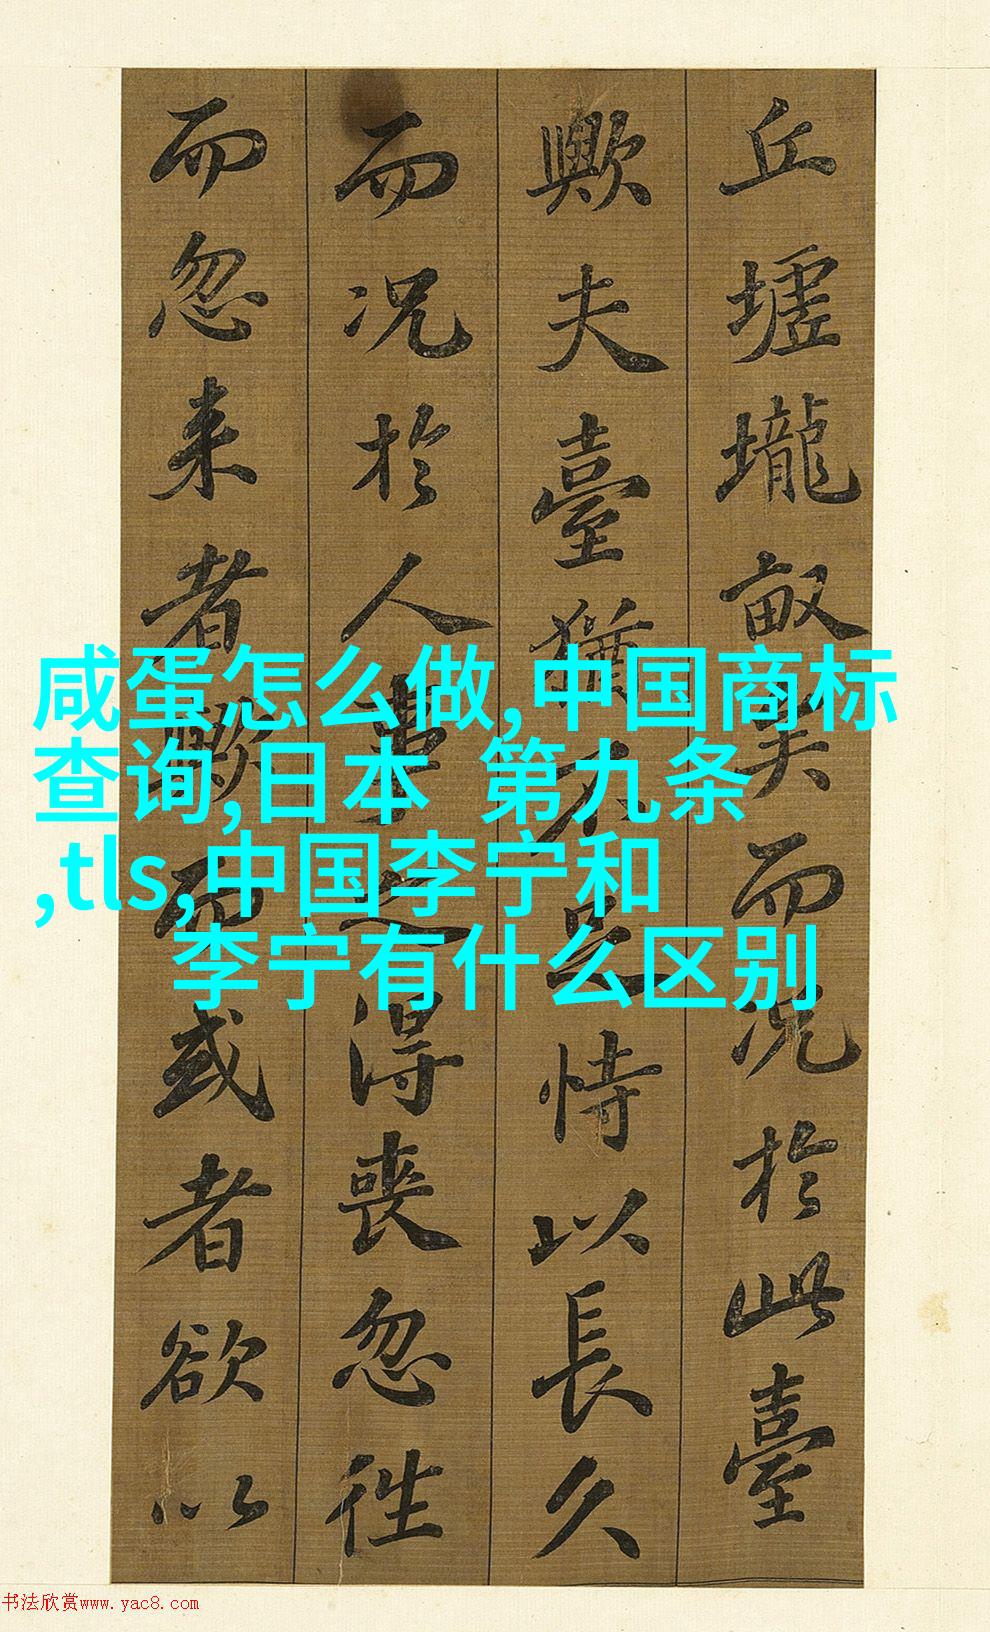 丘墟壠畝矣而况於此臺
歟夫臺猶不足恃以長久
而况於人事之得喪忽徃
而忽来者歟而或者欲以
咸蛋怎么做,中国商标
查询,日本 第九条
,tls,中国李宁和
李宁有什么区别
书法欣赏www.yac8.com